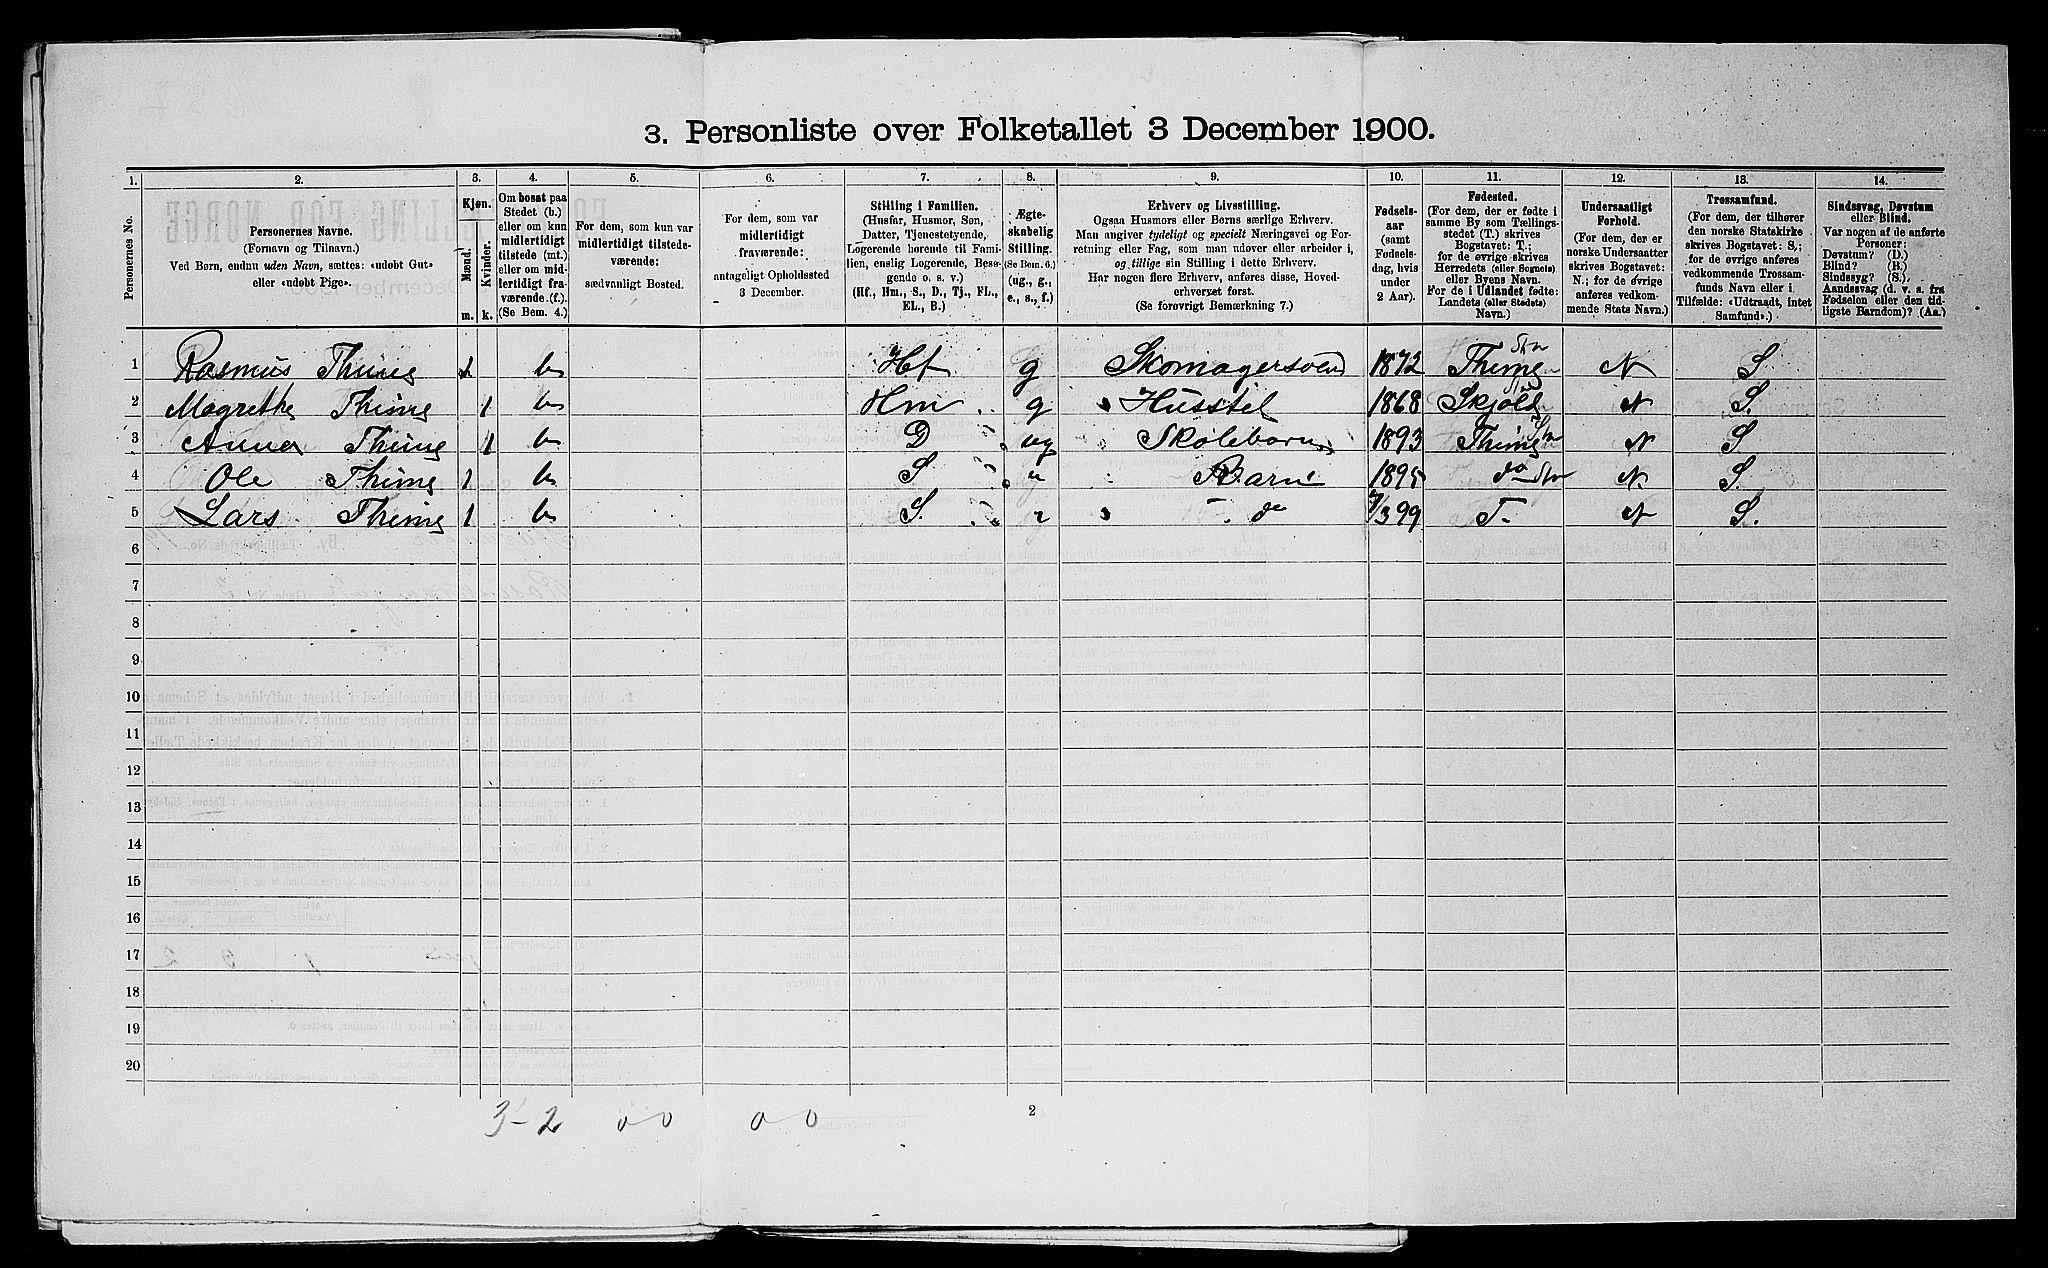 3. Personliste over Folketallet 3 December 1900.
1. 2. 3. 4. 5. 6. 7. 8. 9. 10. 11. 12. 13. 14.
Personernes No.
Personernes Navne.
(Fornavn og Tilnavn.)
Ved Børn, endnu uden Navn, sættes: «udøbt Gut»
eller «udøbt Pige».
Kjøn.
Mænd. Kvinder.
m. k.
Om bosat paa
Stedet (b.)
eller om kun
midlertidigt
tilstede (mt.)
eller om mid-
lertidigt fra-
værende (f.).
(Se Bem. 4.)
For dem, som kun var
midlertidigt tilstede-
værende:
sædvanligt Bosted.
For dem, som var
midlertidigt
fraværende:
antageligt Opholdssted
3 December.
Stilling i Familien.
(Husfar, Husmor, Søn,
Datter, Tjenestetyende,
Logerende hørende til Fami-
lien, enslig Logerende, Besø-
gende o. s. v.)
(Hf., Hm., S., D., Tj., FL.,
EL., B.)
Ægte-
skabelig
Stilling.
(Se Bem. 6.)
(ug., g.,
e., s., f.)
Erhverv og Livsstilling.
Ogsaa Husmors eller Børns særlige Erhverv.
Man angiver tydeligt og specielt Næringsvei og For-
retning eller Fag, som man udøver eller arbeider i,
og tillige sin Stilling i dette Erhverv.
Har nogen flere Erhverv, anføres disse, Hoved-
erhvervet først.
(Se forøvrigt Bemærkning 7.)
Fødsels-
aar
(samt
Fødsels-
dag, hvis
under
2 Aar).
Fødested.
(For dem, der er fødte i
samme By som Tællings-
stedet (T.) skrives
Bogstavet: T.;
for de øvrige skrives
Herredets (eller Sognets)
eller Byens Navn.
For de i Udlandet fødte:
Landets (eller Stedets)
Navn.)
Undersaatligt
Forhold.
(For dem, der er
norske Undersaatter
skrives Bogstavet:
N.; for de øvrige
anføres vedkom-
mende Stats Navn.)
Trossamfund.
(For dem, der tilhører
den norske Statskirke
skrives Bogstavet: S.;
for de øvrige anføres
vedkommende Trossam-
funds Navn eller i
Tilfælde: «Udtraadt, intet
Samfund».)
Sindssvag, Døvstum
eller Blind.
Var nogen af de anførte
Personer:
Døvstum? (D.)
Blind? (B.)
Sindssyg? (S.)
Aandssvag (d. v. s. fra
Fødselen eller den tid-
ligste Barndom)? (Aa.)
1 Rasmus Thime 1 b Hf g Skomagersvend 1872 Thime N S
2 Magrethe Thime 1 b Hm g Husstel 1868 Skjold N S.
3 Anna Thime 1 b D ug Skolebarn 1893 Thime N S
4 Ole Thime 1 b S u Barn 1895 do N. S
5 Lars Thime 1 b S. do 7/3 99 T. N S.
6
7
8
9
10
11
12
13
14
15
16
17
18
19
20
3-2 0 0 0 0 2